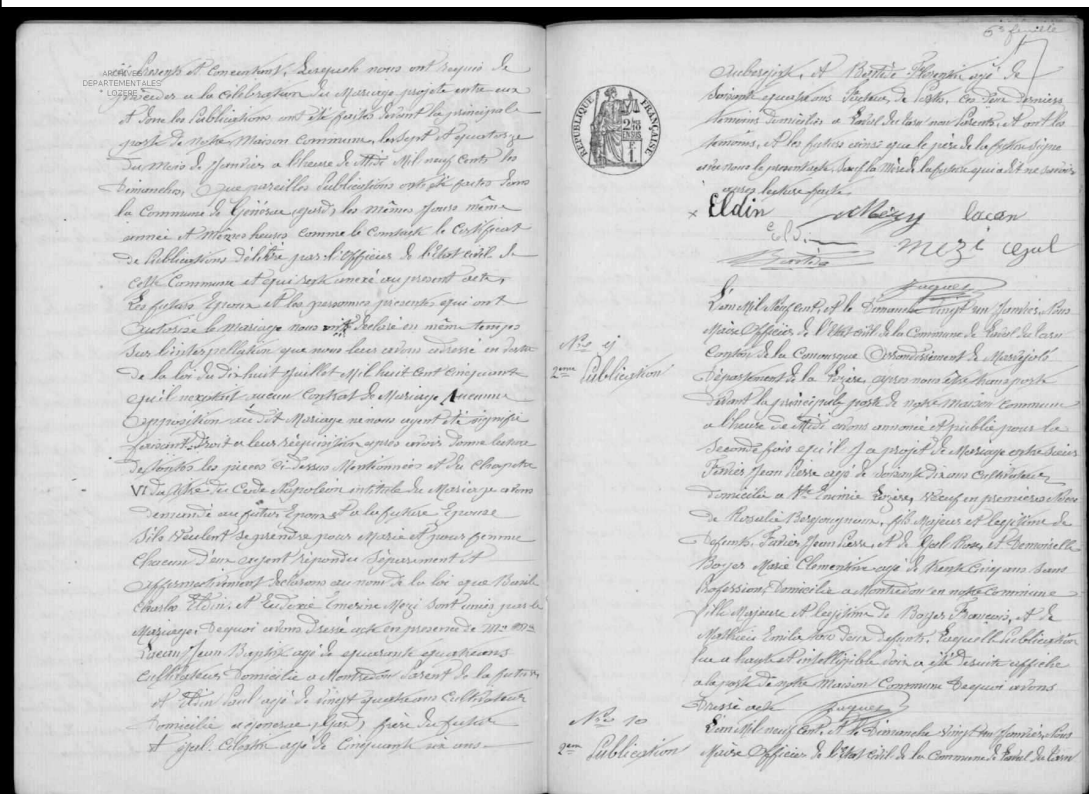 ARCHIVES
DEPARTEMENTALES
LOZERE
présents et consentant, Lesquels nous ont requis de
procéder a la célébration du Mariage projeté entre eux
et dont les Publications ont été faites devant la principale
porte de notre Maison Commune, les sept et quatorze
du mois de Janvier a l'heure de Midi Mil neuf cents les
Dimanches, Que pareilles Publications ont été faites dans
la Commune de Générac, (gard) les mêmes Jours même
année et mêmes heures comme le Constate le Certificat
de Publications délivré par l'Officier de l'Etat civil de
cette Commune et qui reste annexé au présent acte,
Les futurs Epoux et les personnes présentes qui ont
autorisé le Mariage nous ont déclaré en même temps
sur l'interpellation que nous leur avons adressé en vertu
de la loi du dix huit Juillet Mil huit cent Cinquante
qu'il n'existait aucun Contrat de Mariage, Aucune
opposition au dit Mariage ne nous ayant été signifié
faisant droit a leur réquisition après avoir donné lecture
de toutes les pièces ci-dessus Mentionnées et du Chapitre
VI du titre du Code Napoléon intitulé du Mariage avons
demandé au futur Epoux et a la future Epouse
s'ils veulent se prendre pour Mari et pour femme
chacun d'eux ayant répondu séparément et
affirmativement déclarons au nom de la loi que Basile
Charles Eldin, et Eudoxie Emerine Mezi sont unis par le
Mariage. De quoi avons dressé acte en présence de MM
Lacan Jean Baptiste agé de quarante quatre ans
Cultivateur Domicilié a Montredon Parent de la future,
et Eldin Paul agé de vingt quatre ans Cultivateur
Domicilié a Générac (Gard) frère du futur
et Gal Celestin agé de Cinquante six ans
5e feuille
REPUBLIQUE FRANÇAISE
Aubergiste, et Bastide Florentin agé de
soixante quatre ans Facteur de Poste, Ces deux derniers
témoins domiciliés a Laval du Tarn non Parents, et ont les
témoins, et les futurs ainsi que le père de la future signé
avec nous le présent acte, sauf la Mère de la future qui a dit ne savoir
après lecture faite.
x Eldin Mézy Lacan
Eldin Mezi
Bastide
Fages
L'an Mil Neuf Cent, et le Dimanche Vingt un Janvier, Nous
Maire Officier de l'Etat civil de la Commune de Laval du Tarn
Canton de la Canourgue Arrondissement de Marvejols
Département de la Lozère, après nous être transporté
devant la principale porte de notre Maison Commune
a l'heure de Midi avons annoncé et publié pour la
seconde fois qu'il y a projet de Mariage entre sieur
Jean Pierre agé de ans Cultivateur
domicilié a Ste Enimie Lozère, Veuf en premières Noces
de Rosalie, fils Majeur et légitime de
défunts Jean Pierre, et de Gal Rose, et Demoiselle
Boyer Marie Clementine agé de trente Cinq ans sans
Profession Domicilié a Montredon en notre Commune
fille Majeure et légitime de Boyer François, et de
Mathieu Emilie tous deux défunts. Laquelle Publication
lue a haute et intelligible voix a été de suite affiché
a la porte de notre Maison Commune De quoi avons
Dressé acte
L'an Mil neuf Cent, et le Dimanche vingt un Janvier, Nous
Maire Officier de l'Etat civil de la Commune de Laval du Tarn
No 9
2eme Publication
No 10
2eme Publication